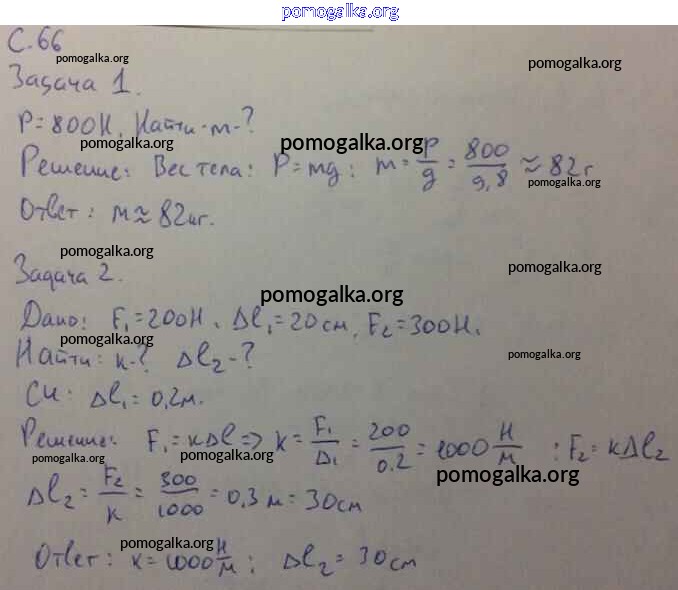 pomogalka.org
С.66
pomogalka.org pomogalka.org
Задача 1.
P=800Н. Найти-m-?
pomogalka.org pomogalka.org
Решение: Вес тела: P=mg: m=P/g=800/9,8≈82г
pomogalka.org
Ответ: m≈82кг.
pomogalka.org
Задача 2.
pomogalka.org
pomogalka.org
Дано: F₁=200Н. Δl₁=20см, F₂=300Н.
pomogalka.org
Найти: k-? Δl₂-?
pomogalka.org
Си: Δl₁=0,2м.
Решение: F₁=kΔl=>k=F₁/Δ₁=200/0.2=1000 Н/м : F₂=kΔl₂
pomogalka.org pomogalka.org
pomogalka.org
Δl₂=F₂/k=300/1000=0,3м=30см
pomogalka.org
Ответ: k=1000Н/м; Δl₂=30см